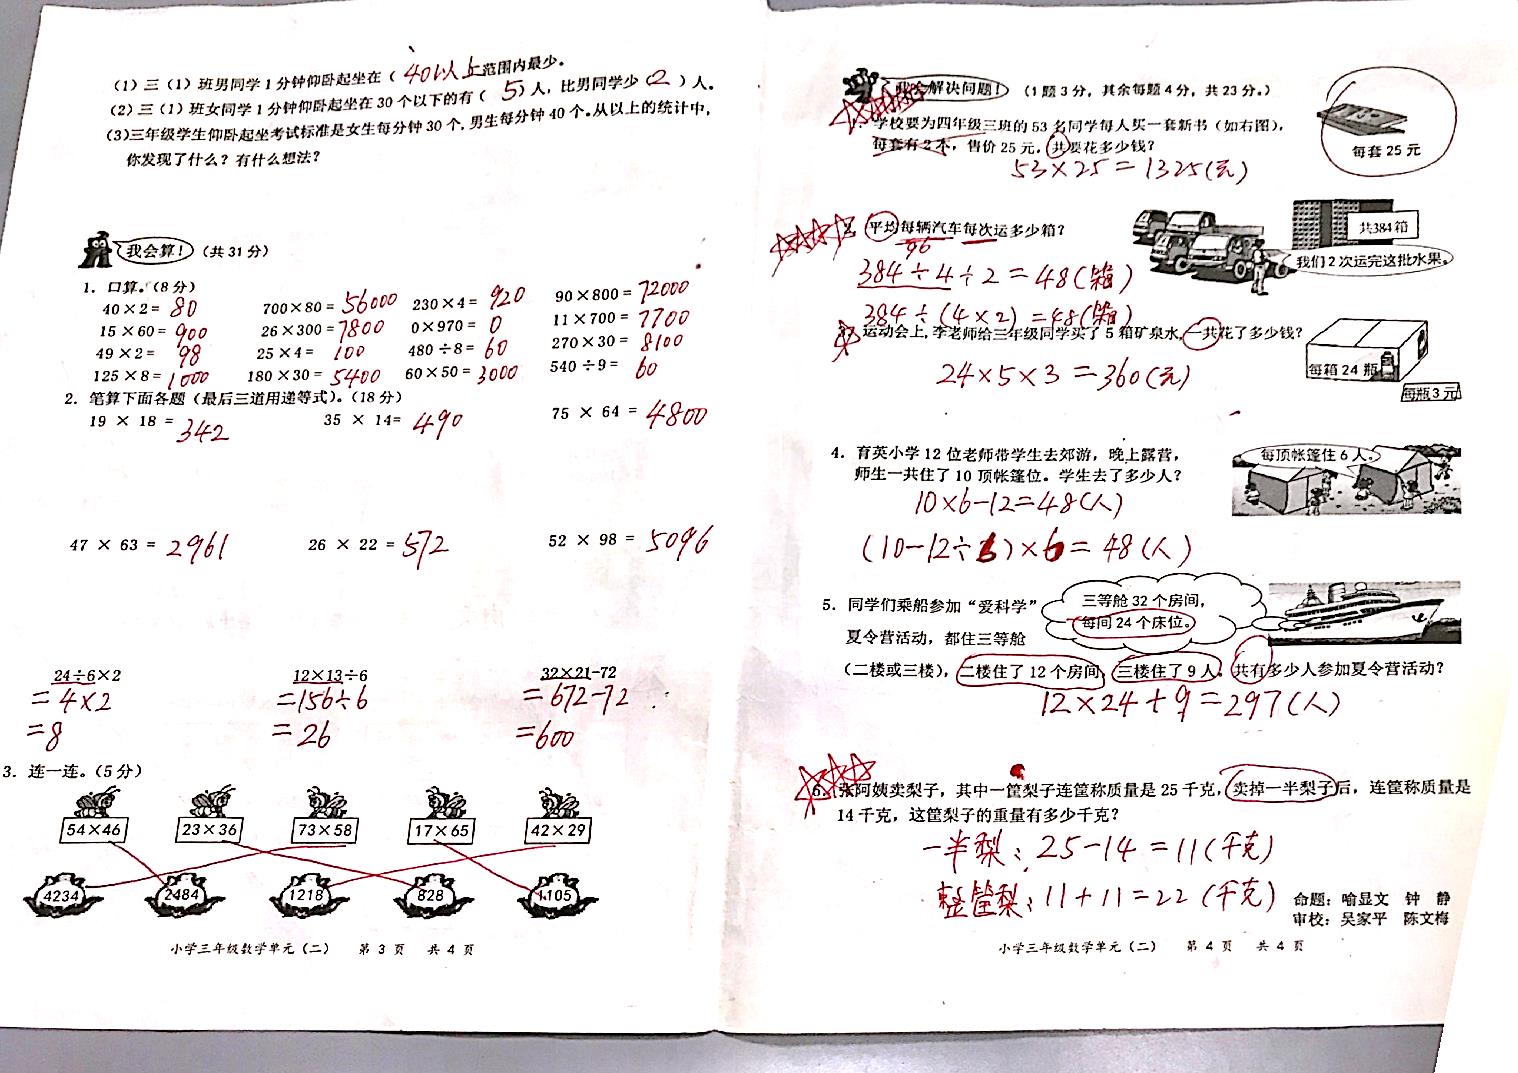 (1)三(1)班男同学1分钟仰卧起坐在( 40以上 )范围内最少。
(2)三(1)班女同学1分钟仰卧起坐在30个以下的有( 5 )人，比男同学少( 2 )人。
(3)三年级学生仰卧起坐考试标准是女生每分钟30个，男生每分钟40个。从以上的统计中，
你发现了什么？有什么想法？
我会算！(共31分)
1. 口算。(8分)
40×2= 80  700×80= 56000  230×4= 920  90×800= 72000
15×60= 900  26×300= 7800  0×970= 0  11×700= 7700
49×2= 98  25×4= 100  480÷8= 60  270×30= 8100
125×8= 1000  180×30= 5400  60×50= 3000  540÷9= 60
2. 笔算下面各题(最后三道用递等式)。(18分)
19 × 18 = 342  35 × 14= 490  75 × 64 = 4800
47 × 63 = 2961  26 × 22 = 572  52 × 98 = 5096
24÷6×2  12×13÷6  32×21-72
=4×2  =156÷6  =672-72
=8  =26  =600
3. 连一连。(5分)
54×46  23×36  73×58  17×65  42×29
4234  2484  1218  828  1105
小学三年级数学单元(二)  第3页  共4页
我会解决问题！(1题3分，其余每题4分，共23分。)
学校要为四年级三班的53名同学每人买一套新书(如右图)，
每套有2本，售价25元。共要花多少钱？
每套25元
53×25=1325(元)
2. 平均每辆汽车每次运多少箱？
共384箱
我们2次运完这批水果。
96
384÷4÷2=48(箱)
384÷(4×2)=48(箱)
运动会上，李老师给三年级同学买了5箱矿泉水，一共花了多少钱？
每箱24瓶
每瓶3元
24×5×3=360(元)
4. 育英小学12位老师带学生去郊游，晚上露营，
师生一共住了10顶帐篷位。学生去了多少人？
每顶帐篷住6人。
10×6-12=48(人)
(10-12÷6)×6=48(人)
5. 同学们乘船参加“爱科学”
夏令营活动，都住三等舱
三等舱32个房间，
每间24个床位。
(二楼或三楼)，二楼住了12个房间，三楼住了9人。共有多少人参加夏令营活动？
12×24+9=297(人)
6. 张阿姨卖梨子，其中一筐梨子连筐称质量是25千克，卖掉一半梨子后，连筐称质量是
14千克，这筐梨子的重量有多少千克？
一半梨：25-14=11(千克)
整筐梨：11+11=22(千克)
命题：喻显文 钟 静
审校：吴家平 陈文梅
小学三年级数学单元(二)  第4页  共4页